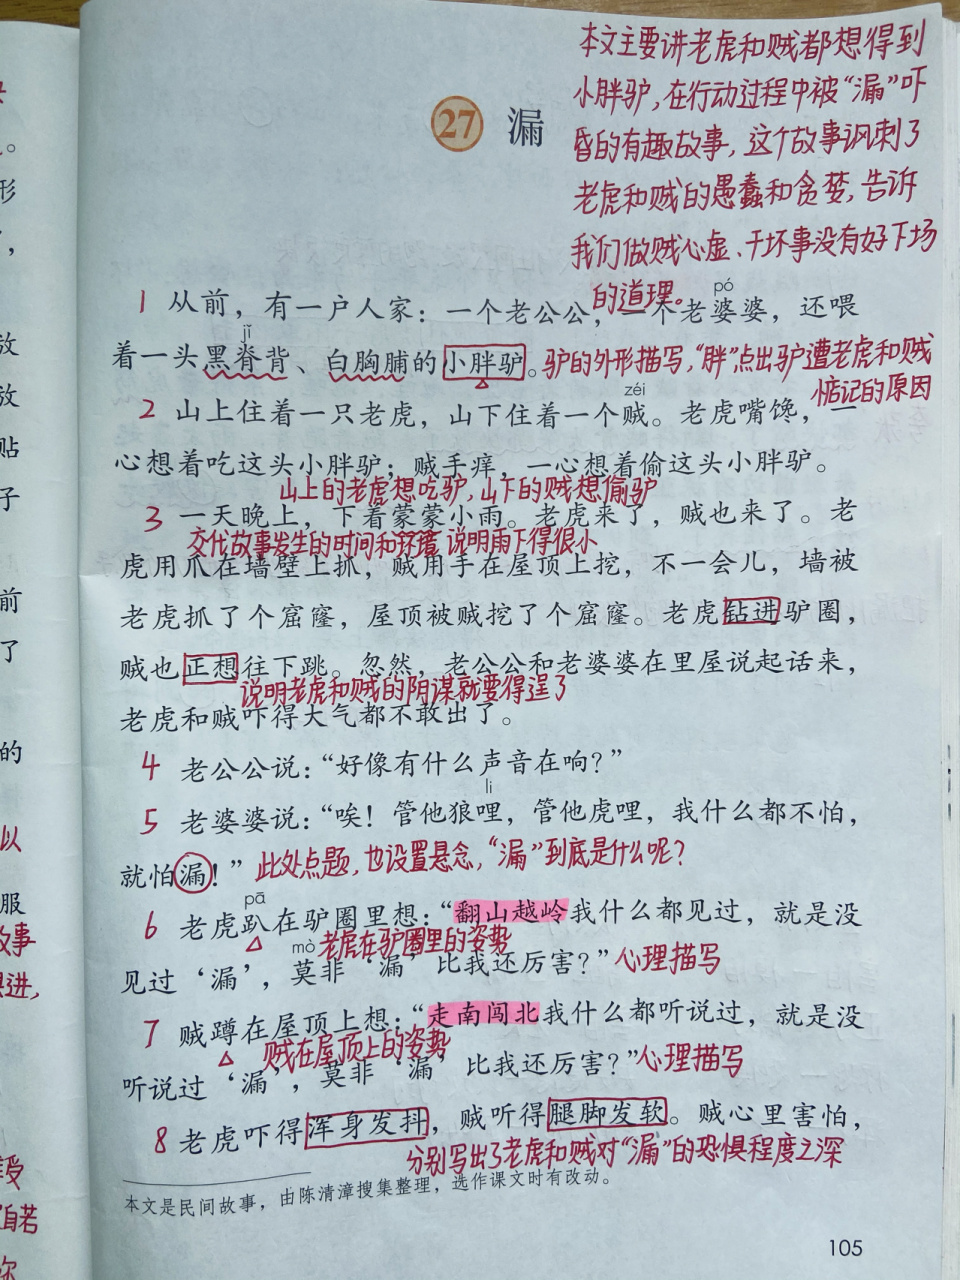 本文主要讲老虎和贼都想得到
小胖驴，在行动过程中被“漏”吓
昏的有趣故事，这个故事讽刺了
老虎和贼的愚蠢和贪婪，告诉
我们做贼心虚、干坏事没有好下场
的道理。
27 漏
pó
1 从前，有一户人家：一个老公公，一个老婆婆，还喂
jǐ
着一头黑脊背、白胸脯的小胖驴。
驴的外形描写，“胖”点出驴遭老虎和贼
惦记的原因
zéi
2 山上住着一只老虎，山下住着一个贼。老虎嘴馋，一
心想着吃这头小胖驴；贼手痒，一心想着偷这头小胖驴。
山上的老虎想吃驴，山下的贼想偷驴
3 一天晚上，下着蒙蒙小雨。老虎来了，贼也来了。老
交代故事发生的时间和环境 说明雨下得很小
虎用爪在墙壁上抓，贼用手在屋顶上挖，不一会儿，墙被
老虎抓了个窟窿，屋顶被贼挖了个窟窿。老虎钻进驴圈，
贼也正想往下跳。忽然，老公公和老婆婆在里屋说起话来，
说明老虎和贼的阴谋就要得逞了
老虎和贼吓得大气都不敢出了。
4 老公公说：“好像有什么声音在响？”
li
5 老婆婆说：“唉！管他狼哩，管他虎哩，我什么都不怕，
就怕漏！”
此处点题，也设置悬念，“漏”到底是什么呢？
pā
6 老虎趴在驴圈里想：“翻山越岭我什么都见过，就是没
老虎在驴圈里的姿势
mò
见过‘漏’，莫非‘漏’比我还厉害？”
心理描写
7 贼蹲在屋顶上想：“走南闯北我什么都听说过，就是没
贼在屋顶上的姿势
听说过‘漏’，莫非‘漏’比我还厉害？”
心理描写
8 老虎吓得浑身发抖，贼听得腿脚发软。贼心里害怕，
分别写出了老虎和贼对“漏”的恐惧程度之深
本文是民间故事，由陈清漳搜集整理，选作课文时有改动。
105
形
，
放
放
贴
子
前
了
的
以
服
故事
进，
受
自若
你